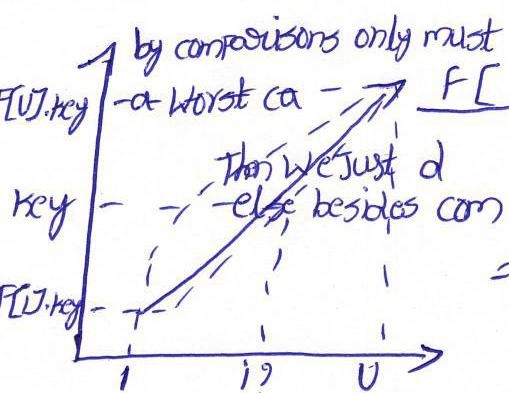 by comparisons only must
F[U].key -a worst ca F[
Then we Just d
key -else besides com
F[i].key
i i? U